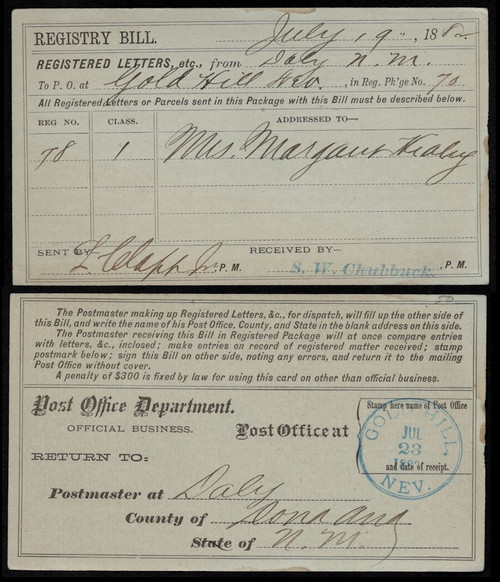 REGISTRY BILL. July 19 188
REGISTERED LETTERS, etc., from Daly N. M.
To P. O. at Gold Hill Nev. in Reg. Ph'ge No. 70
All Registered Letters or Parcels sent in this Package with this Bill must be described below.
REG NO. CLASS. ADDRESSED TO—
78 1 Mrs. Margaret
SENT BY L. Clapp Jr. P. M. RECEIVED BY— S. W. Chubbuck, P. M.
50
The Postmaster making up Registered Letters, &c., for dispatch, will fill up the other side of
this Bill, and write the name of his Post Office, County, and State in the blank address on this side.
The Postmaster receiving this Bill in Registered Package will at once compare entries
with letters, &c., inclosed; make entries on record of registered matter received; stamp
postmark below; sign this Bill on other side, noting any errors, and return it to the mailing
Post Office without cover.
A penalty of $300 is fixed by law for using this card on other than official business.
Post Office Department.
OFFICIAL BUSINESS.
Post Office at
Stamp here name of Post Office
and date of receipt.
GOLD HILL,
JUL
23
NEV.
RETURN TO:
Postmaster at Daly
County of Dona Ana
State of N. M.